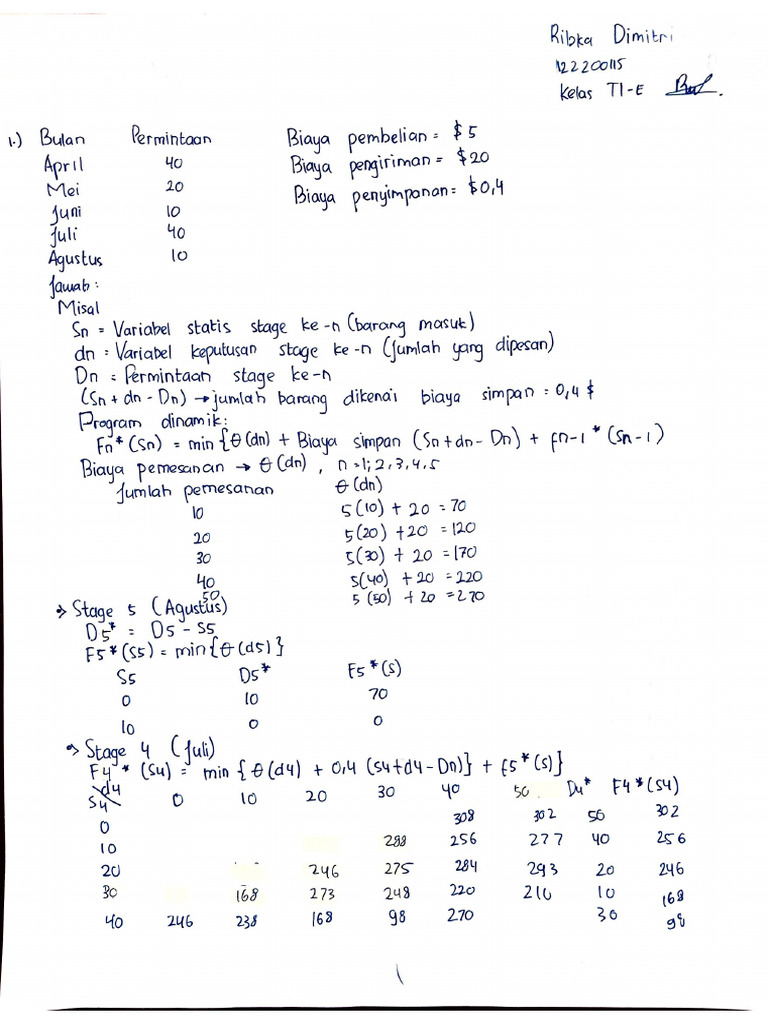 Ribka Dimitri
122200115
Kelas TI-E
1.) Bulan Permintaan Biaya pembelian = $5
April 40 Biaya pengiriman = $20
Mei 20 Biaya penyimpanan = $0,4
Juni 10
Juli 40
Agustus 10
Jawab :
Misal
Sn = Variabel statis stage ke-n (barang masuk)
dn = Variabel keputusan stage ke-n (Jumlah yang dipesan)
Dn = Permintaan stage ke-n
(Sn + dn - Dn) → jumlah barang dikenai biaya simpan = 0,4 $
Program dinamik:
Fn* (Sn) = min {θ(dn) + Biaya simpan (Sn+dn-Dn) + fn-1* (Sn-1)
Biaya pemesanan → θ(dn) , n = 1; 2, 3, 4, 5
Jumlah pemesanan θ(dn)
10 5(10) + 20 = 70
20 5(20) + 20 = 120
30 5(30) + 20 = 170
40 5(40) + 20 = 220
50 5(50) + 20 = 270
→ Stage 5 (Agustus)
D5* = D5 - S5
F5*(S5) = min{θ(d5)}
S5 D5* F5*(s)
0 10 70
10 0 0
→ Stage 4 (Juli)
F4* (S4) = min {θ(d4) + 0,4 (S4+d4-Dn)} + f5*(S)}
d4
S4 0 10 20 30 40 50 D4* F4*(S4)
0 308 302 50 302
10 288 256 277 40 256
20 246 275 284 293 20 246
30 168 273 248 220 210 10 168
40 246 238 168 98 270 30 98